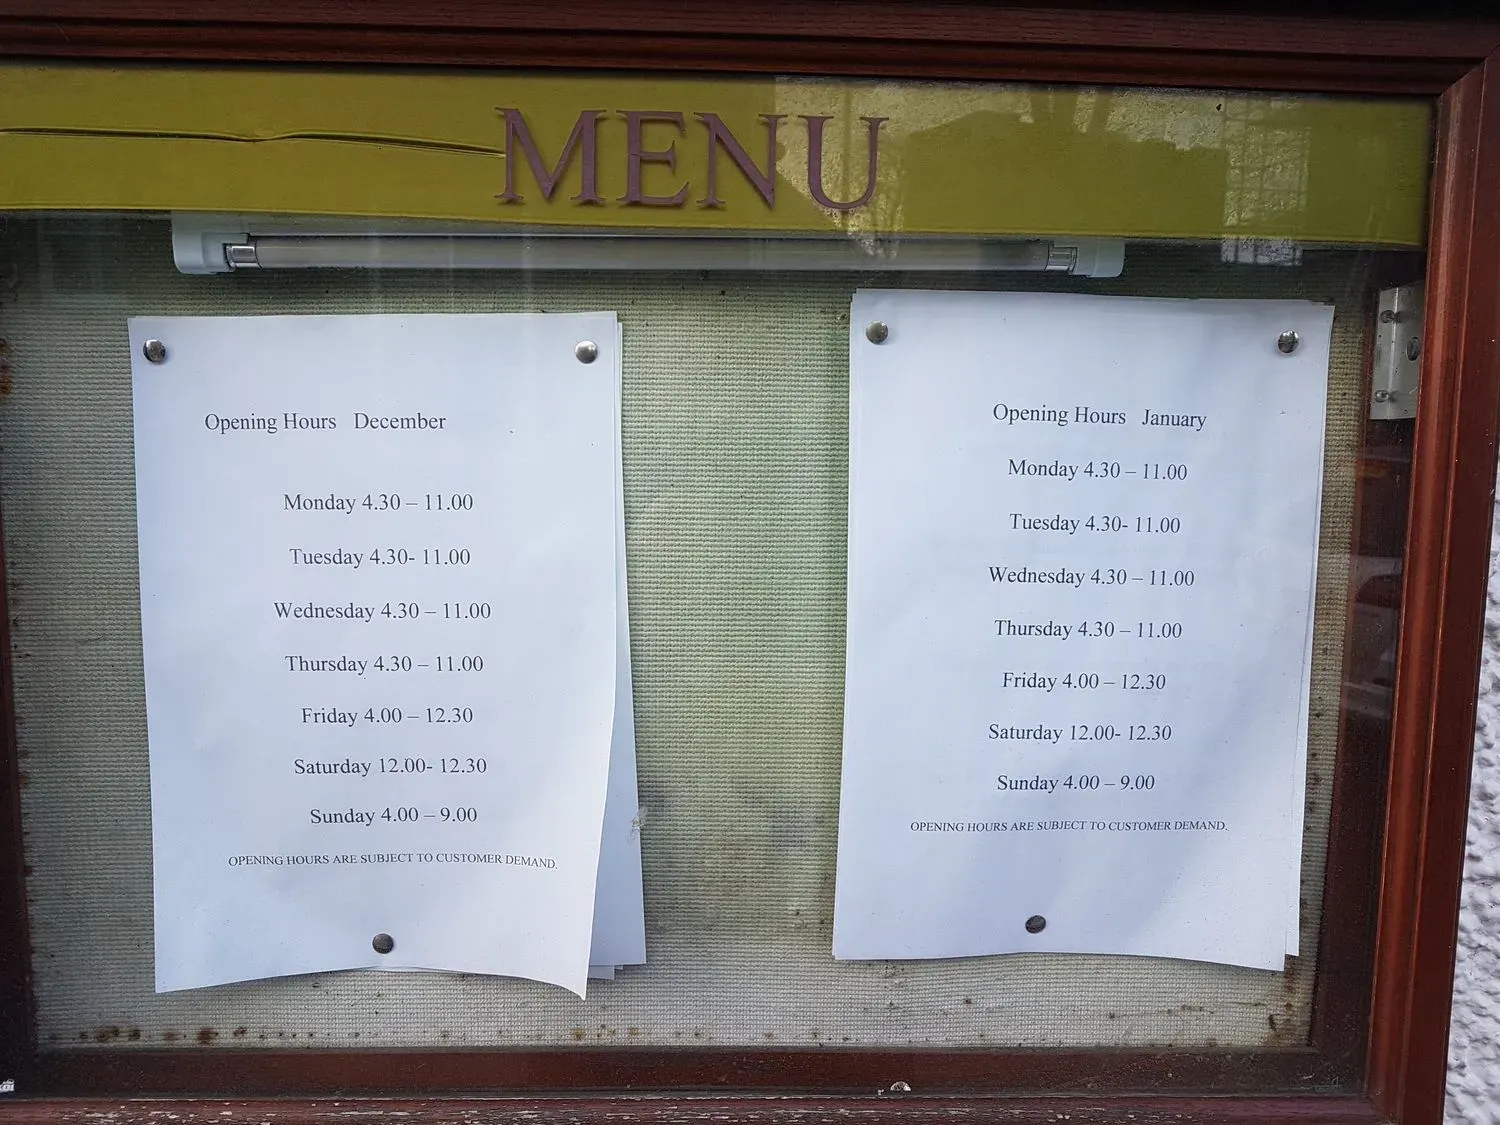 MENU
Opening Hours December
Monday 4.30 – 11.00
Tuesday 4.30- 11.00
Wednesday 4.30 – 11.00
Thursday 4.30 – 11.00
Friday 4.00 – 12.30
Saturday 12.00- 12.30
Sunday 4.00 – 9.00
OPENING HOURS ARE SUBJECT TO CUSTOMER DEMAND.
Opening Hours January
Monday 4.30 – 11.00
Tuesday 4.30- 11.00
Wednesday 4.30 – 11.00
Thursday 4.30 – 11.00
Friday 4.00 – 12.30
Saturday 12.00- 12.30
Sunday 4.00 – 9.00
OPENING HOURS ARE SUBJECT TO CUSTOMER DEMAND.